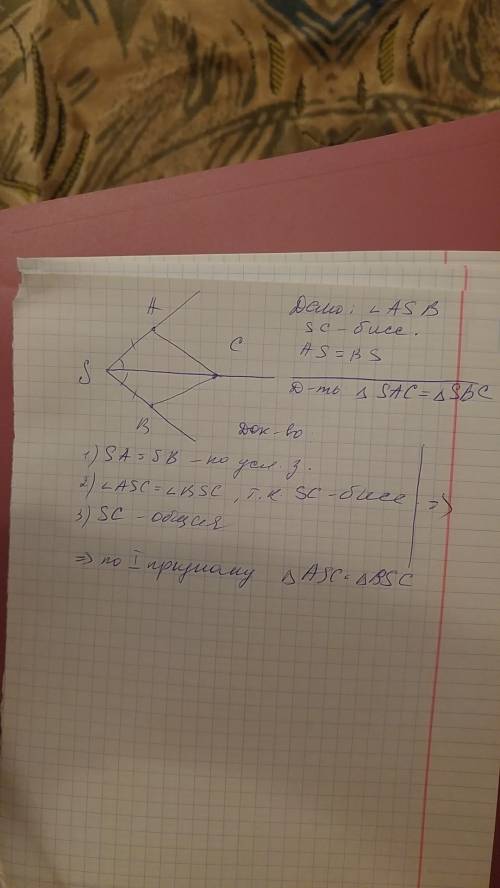 A
S
B
C
Дано: ∠ASB
SC - бисс.
AS = BS
Д-ть △SAC = △SBC
Док-во
1) SA = SB - по усл. з.
2) ∠ASC = ∠BSC, т.к SC - бисс
3) SC - общая
=>
=> по I признаку △ASC = △BSC